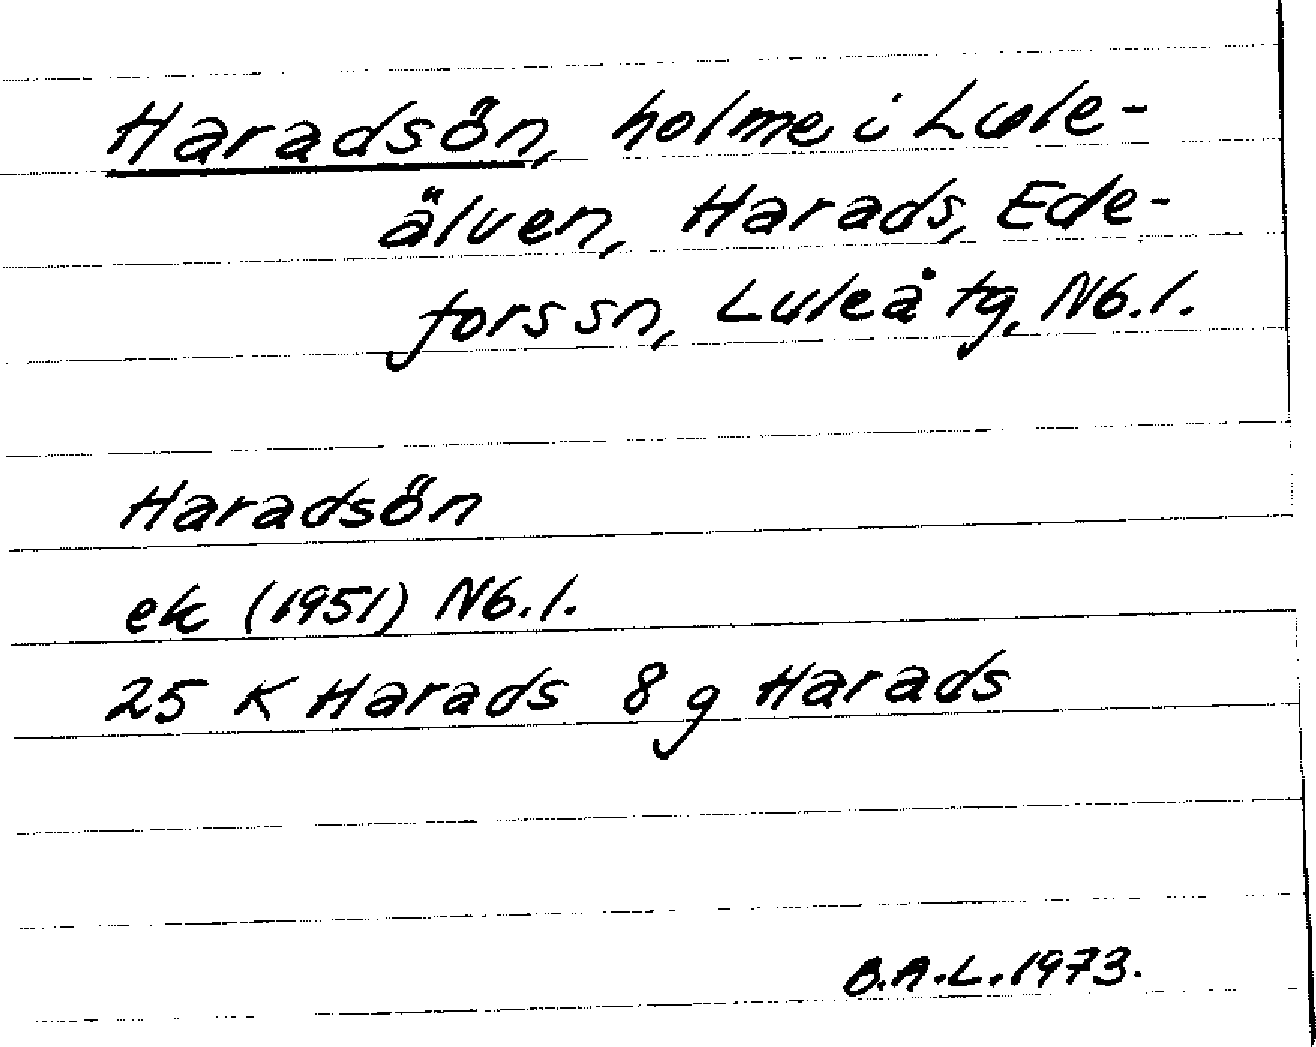 Haradsön, holme i Lule-
älven, Harads, Ede-
fors sn, Luleå tg, Nb. l.
Haradsön
ek (1951) Nb. l.
25 K Harads 8 g Harads
B.A.L. 1973.